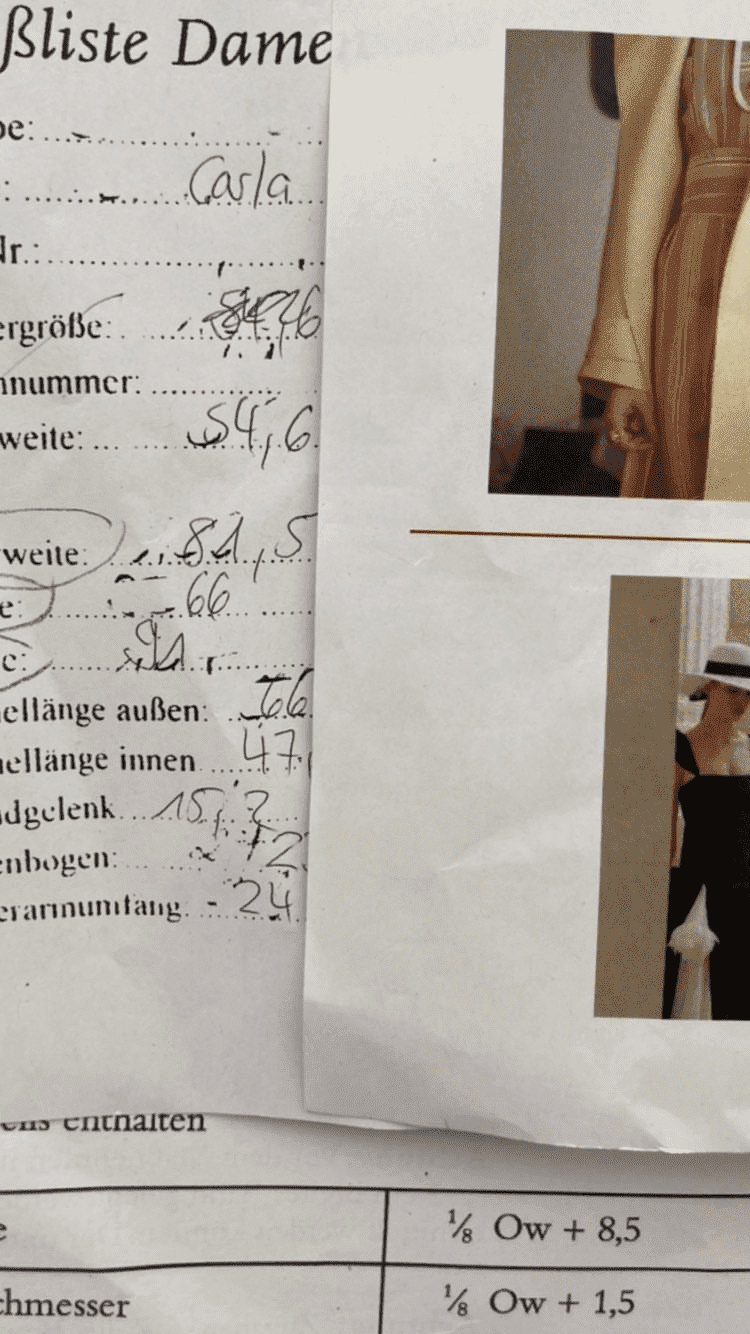 ßliste Dame
be:
: Carla
Nr.:
ergröße:
nnummer:
weite: 54,6
weite: 81,5
e: 66
e: 91
ellänge außen: 66
ellänge innen 47,
dgelenk 15,
enbogen:
erarmumfang: 24
enthalten
e ⅛ Ow + 8,5
chmesser ⅛ Ow + 1,5